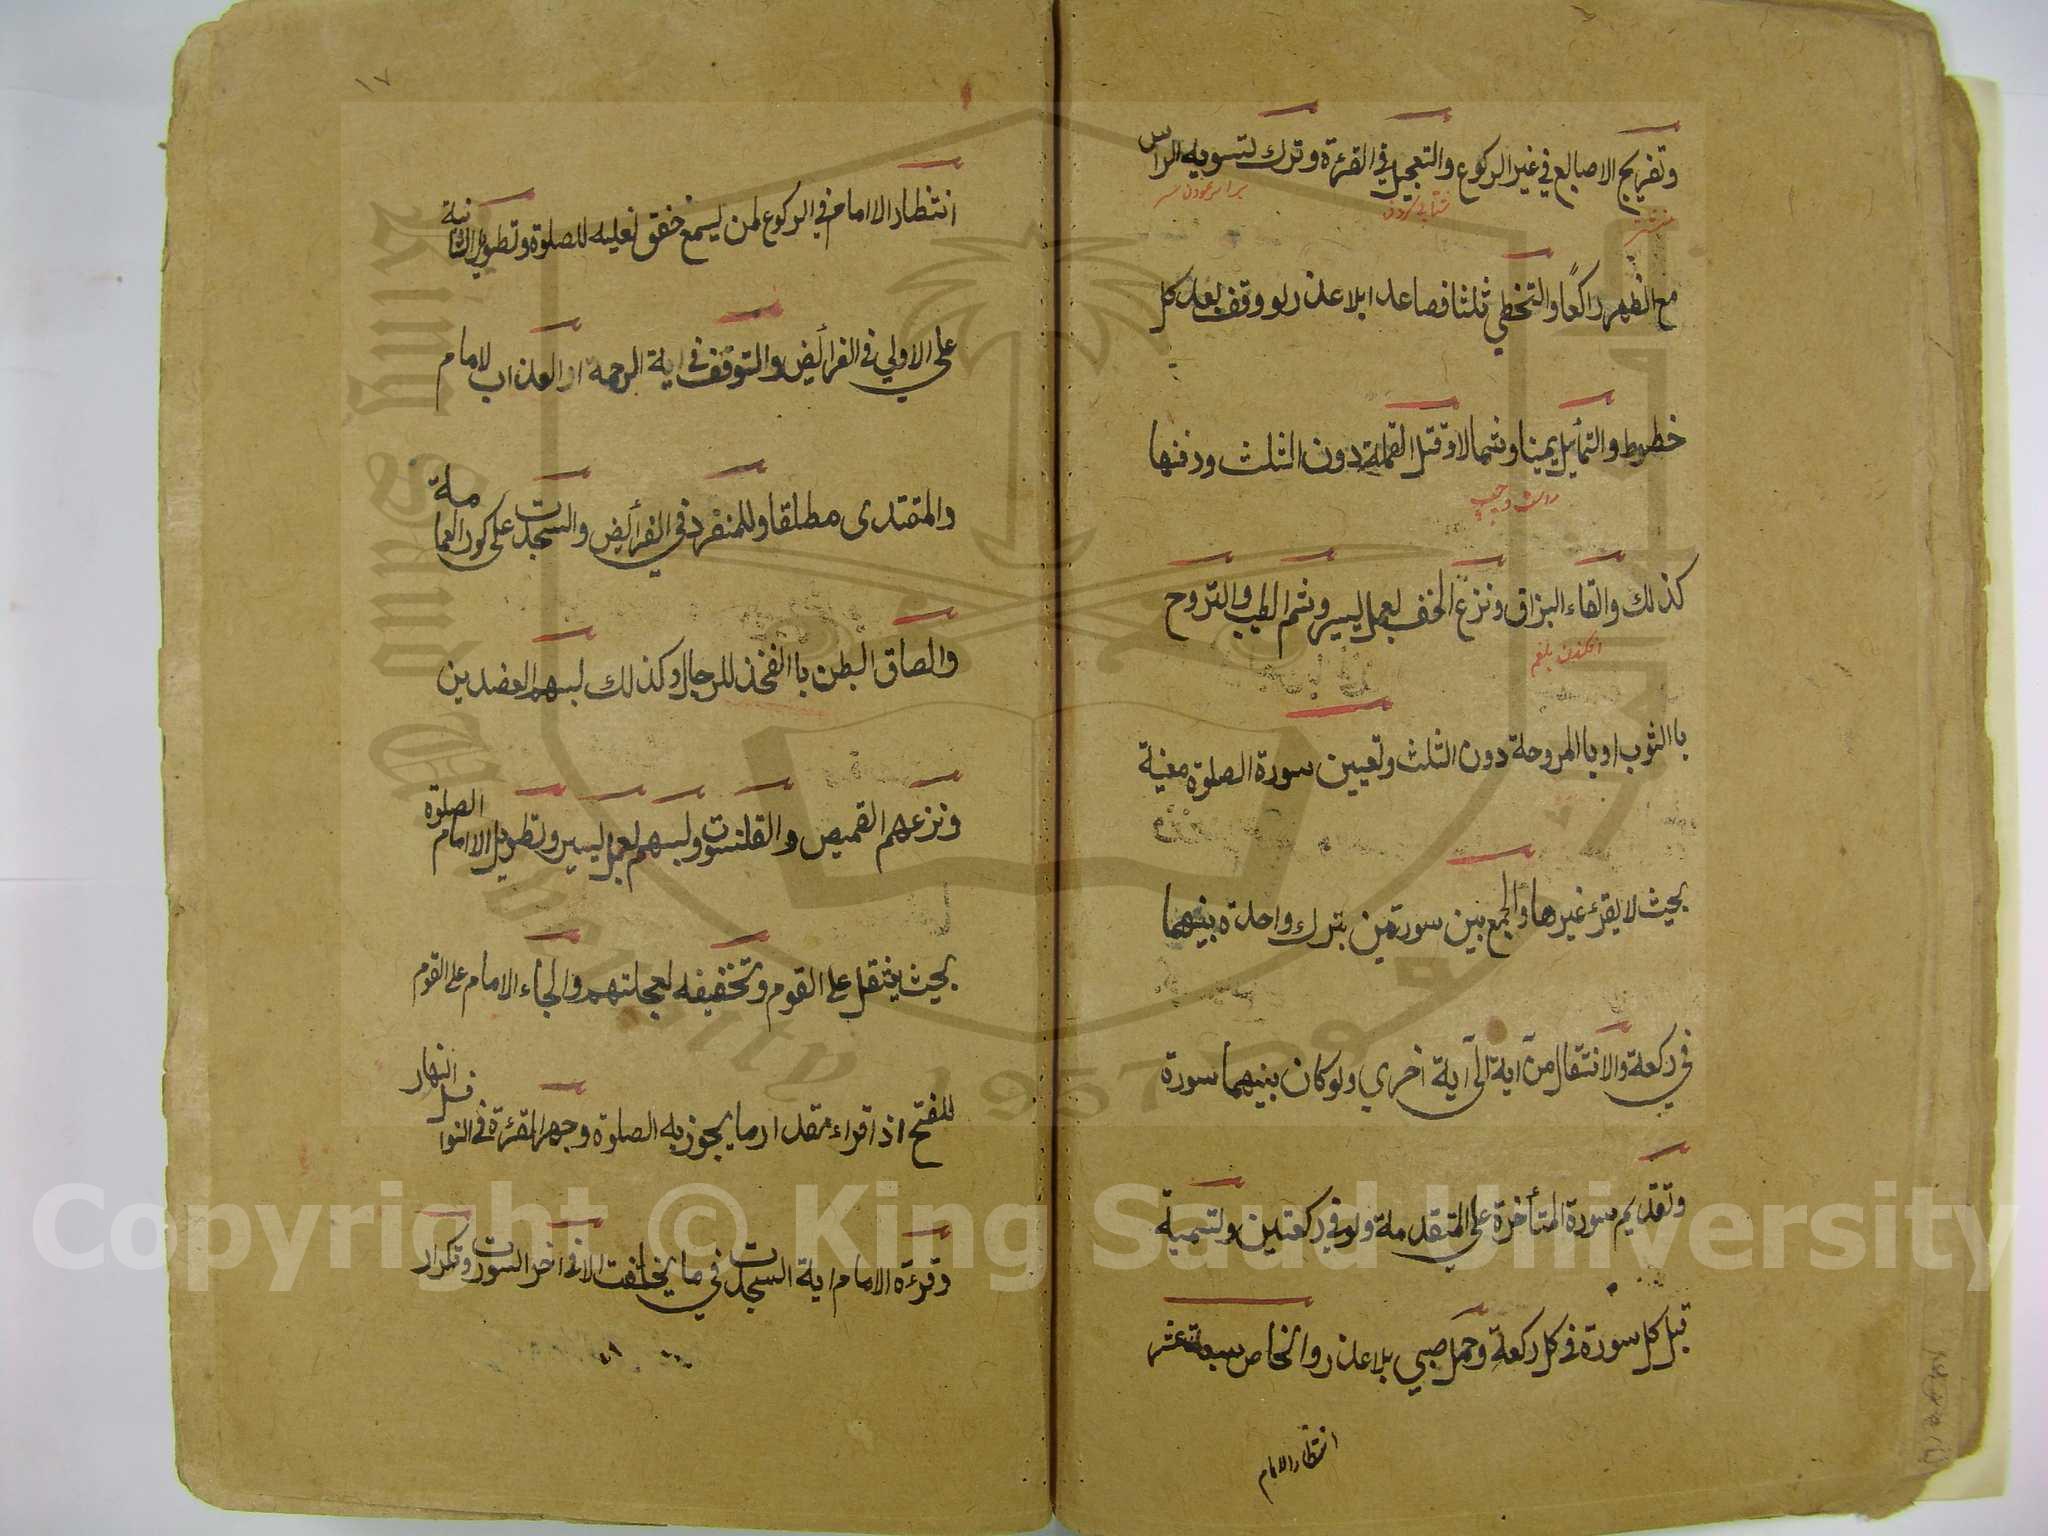 وتفريج الاصابع في غير الركوع والتعجيل في القرءة وترك تسوية الراس
مع الظهر راكعًا والتخطي ثلثا فصاعدا بلا عذر لو وقف بعد كل
خطوط والتمأيل يمينا وشمالا وقتل القملة دون الثلث ودفنها
كذلك والقاء البزاق ونزع الخف بعمل يسير وشم الطيب والتروح
با الثوب او با المروحة دون الثلث وتعيين سورة الصلوة معينة
بحيث لا يقرء غيرها والجمع بين سورتين بترك واحدة بينهما
في ركعة والانتقال من آية الى آية اخري ولو كان بينهما سورة
وتقديم سورة المتأخرة على المتقدمة ولو في ركعتين وتسمية
قبل كل سورة في كل ركعة وحمل صبي بلا عذر والخاص سبعة عشر
انتظار الامام
١٧
انتظار الا امام في الركوع لمن يسمع خفق نعليه للصلوة وتطويل الثانية
على الاولي في الفرأيض والتوقف في اية الرحمة او العذاب لامام
والمقتدى مطلقا وللمنفرد في الفرأيض والسجدت على كور العمامة
والصاق البطن با الفخذ للرجال وكذلك لبسهم العضدين
ونزعهم القميص والقلنسوت ولبسهم بعمل يسير وتطويل الا امام الصلوة
بحيث يثقل على القوم وتخفيفه لعجلتهم والجاء الامام على القوم
للفتح اذا قراء مقدار ما يجوز به الصلوة وجهر القرءة في النوافل النهار
وقرءة الامام اية السجدت في ما يخافت الا في اخر السورت وتكرار
Copyright © King Saud University
King Saud University
1957